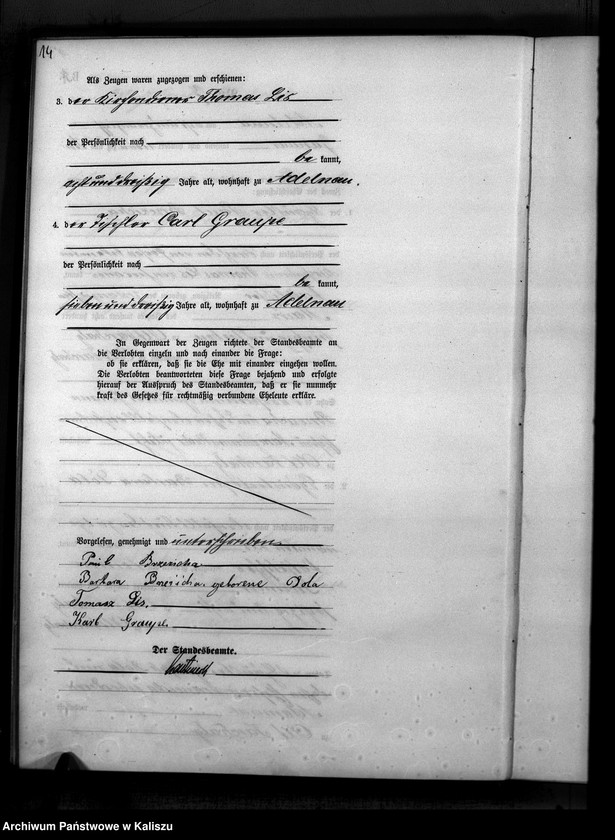 14
Als Zeugen waren zugezogen und erschienen:
3. der Kirchendiener Thomas Lis
der Persönlichkeit nach
be kannt,
acht und dreißig Jahre alt, wohnhaft zu Adelnau.
4. der Tischler Carl Graupe
der Persönlichkeit nach
be kannt,
sieben und dreißig Jahre alt, wohnhaft zu Adelnau
In Gegenwart der Zeugen richtete der Standesbeamte an
die Verlobten einzeln und nach einander die Frage:
ob sie erklären, daß sie die Ehe mit einander eingehen wollen.
Die Verlobten beantworteten diese Frage bejahend und erfolgte
hierauf der Ausspruch des Standesbeamten, daß er sie nunmehr
kraft des Gesetzes für rechtmäßig verbundene Eheleute erkläre.
Vorgelesen, genehmigt und unterschrieben
Paul Brzezicha
Barbara geborene Dola
Tomasz Lis.
Karl Graupe.
Der Standesbeamte.
Archiwum Państwowe w Kaliszu